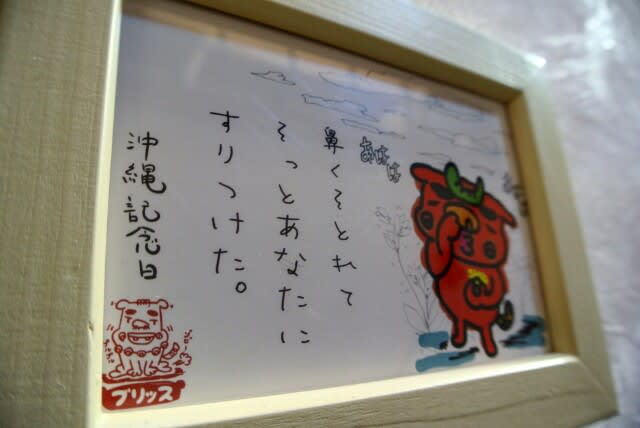 あはは
鼻くそとれて
そっとあなたに
すりつけた。
沖縄記念日
ブリッス